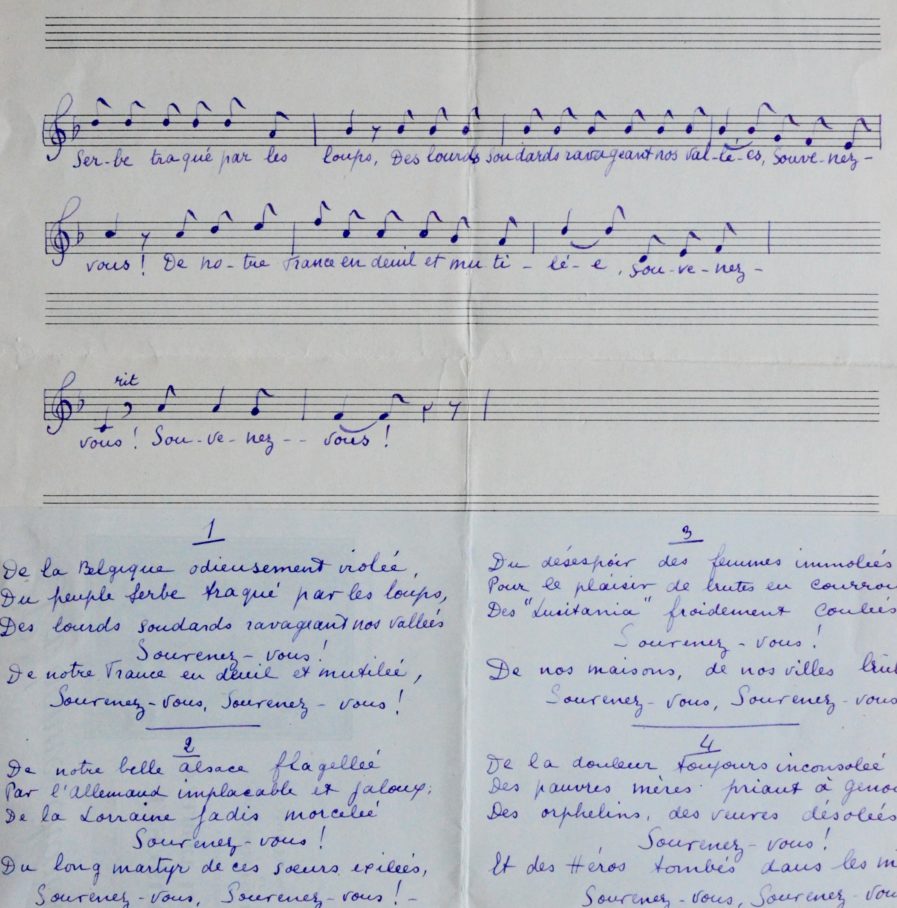 Ser-be tra qué par les loups, Des lourds soudards ravageant nos val-lé-es, Souve-nez-
vous! De no-tre France en deuil et mu ti-lé-e, sou-ve-nez-
rit
vous! Sou-ve-nez-- vous!
1
De la Belgique odieusement violée,
Du peuple Serbe traqué par les loups,
Des lourds soudards ravageant nos vallées
Souvenez-vous!
De notre France en deuil et mutilée,
Souvenez-vous, Souvenez-vous!
2
De notre belle alsace flagellée
Par l'allemand implacable et jaloux;
De la Lorraine jadis morcelée
Souvenez-vous!
Du long martyr de ces sœurs exilées,
Souvenez-vous, Souvenez-vous!-
3
Du désespoir des femmes immolées
Pour le plaisir de brutes en courrou
Des "Lusitania" froidement coulées
Souvenez-vous!
De nos maisons, de nos villes
Souvenez-vous, Souvenez-vous
4
De la douleur toujours inconsolée
Des pauvres mères priant à genou
Des orphelins, des veuves désolées
Souvenez-vous!
Et des Héros tombés dans les
Souvenez-vous, Souvenez-vou